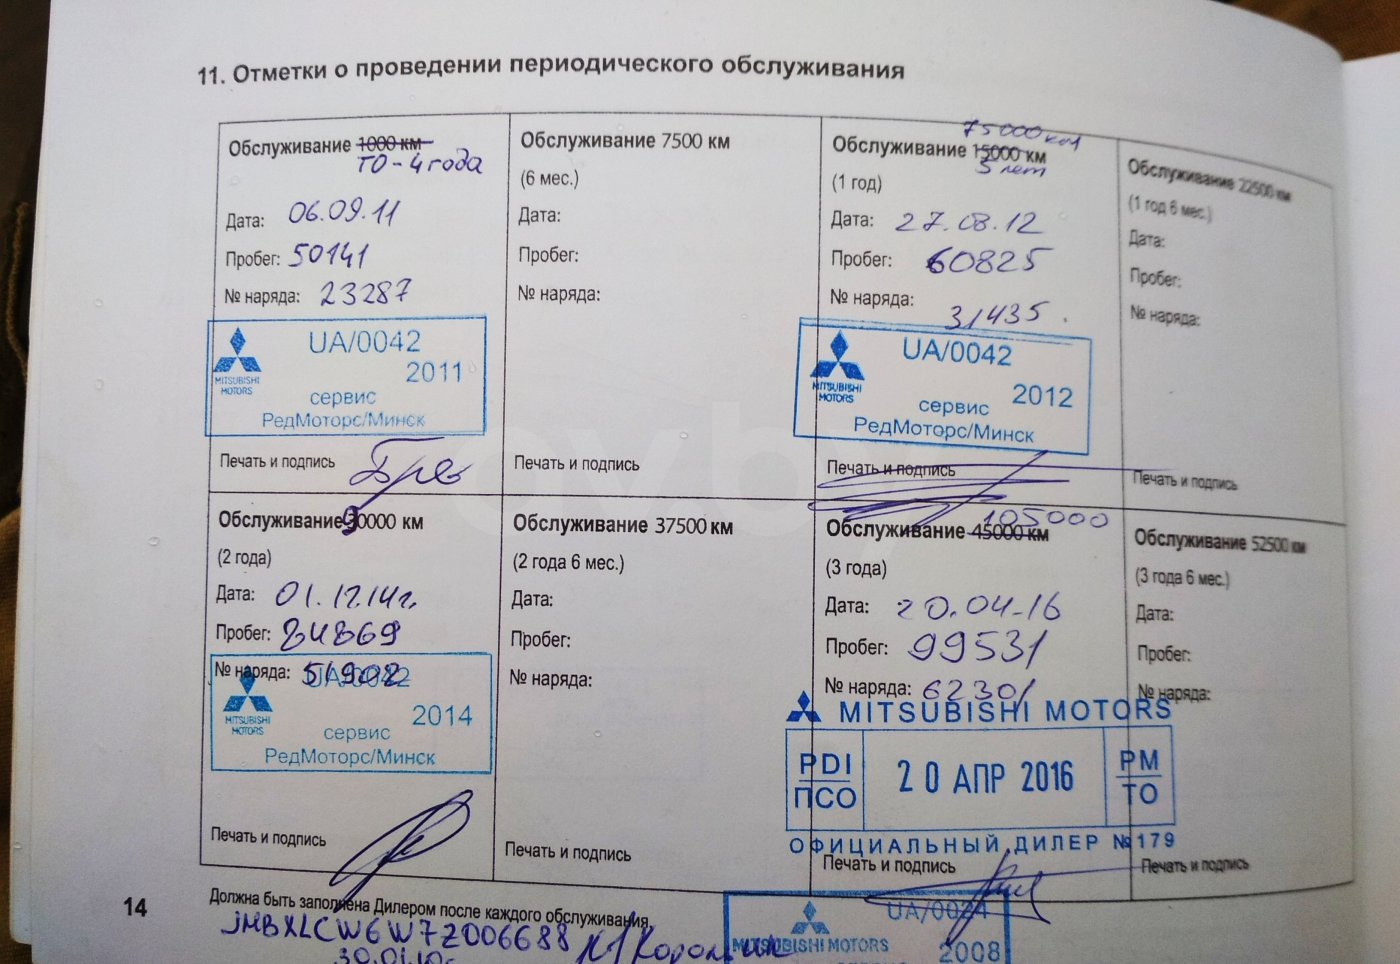 11. Отметки о проведении периодического обслуживания
Обслуживание 1000 км
ТО-4 года
Дата: 06.09.11
Пробег: 50141
№ наряда: 23287
UA/0042
2011
MITSUBISHI
MOTORS
сервис
РедМоторс/Минск
Печать и подпись
Обслуживание 7500 км
(6 мес.)
Дата:
Пробег:
№ наряда:
Печать и подпись
75000 км
Обслуживание 15000 км
5 лет
(1 год)
Дата: 27.08.12
Пробег: 60825
№ наряда:
31435.
UA/0042
2012
MITSUBISHI
MOTORS
сервис
РедМоторс/Минск
Печать и подпись
Обслуживание 22500 км
(1 год 6 мес.)
Дата:
Пробег:
№ наряда:
Печать и подпись
Обслуживание 90000 км
(2 года)
Дата: 01.12.14г.
Пробег: 84869
№ наряда: 51902
UA/0042
2014
MITSUBISHI
MOTORS
сервис
РедМоторс/Минск
Печать и подпись
Обслуживание 37500 км
(2 года 6 мес.)
Дата:
Пробег:
№ наряда:
Печать и подпись
105000
Обслуживание 45000 км
(3 года)
Дата: 20.04-16
Пробег: 99531
№ наряда: 62301
MITSUBISHI MOTORS
PDI
ПСО
20 АПР 2016
PM
ТО
ОФИЦИАЛЬНЫЙ ДИЛЕР №179
Печать и подпись
Обслуживание 52500 км
(3 года 6 мес.)
Дата:
Пробег:
№ наряда:
Печать и подпись
14
Должна быть заполнена Дилером после каждого обслуживания
JMBXLCW6W7Z006688
UA/0024
MITSUBISHI MOTORS
2008